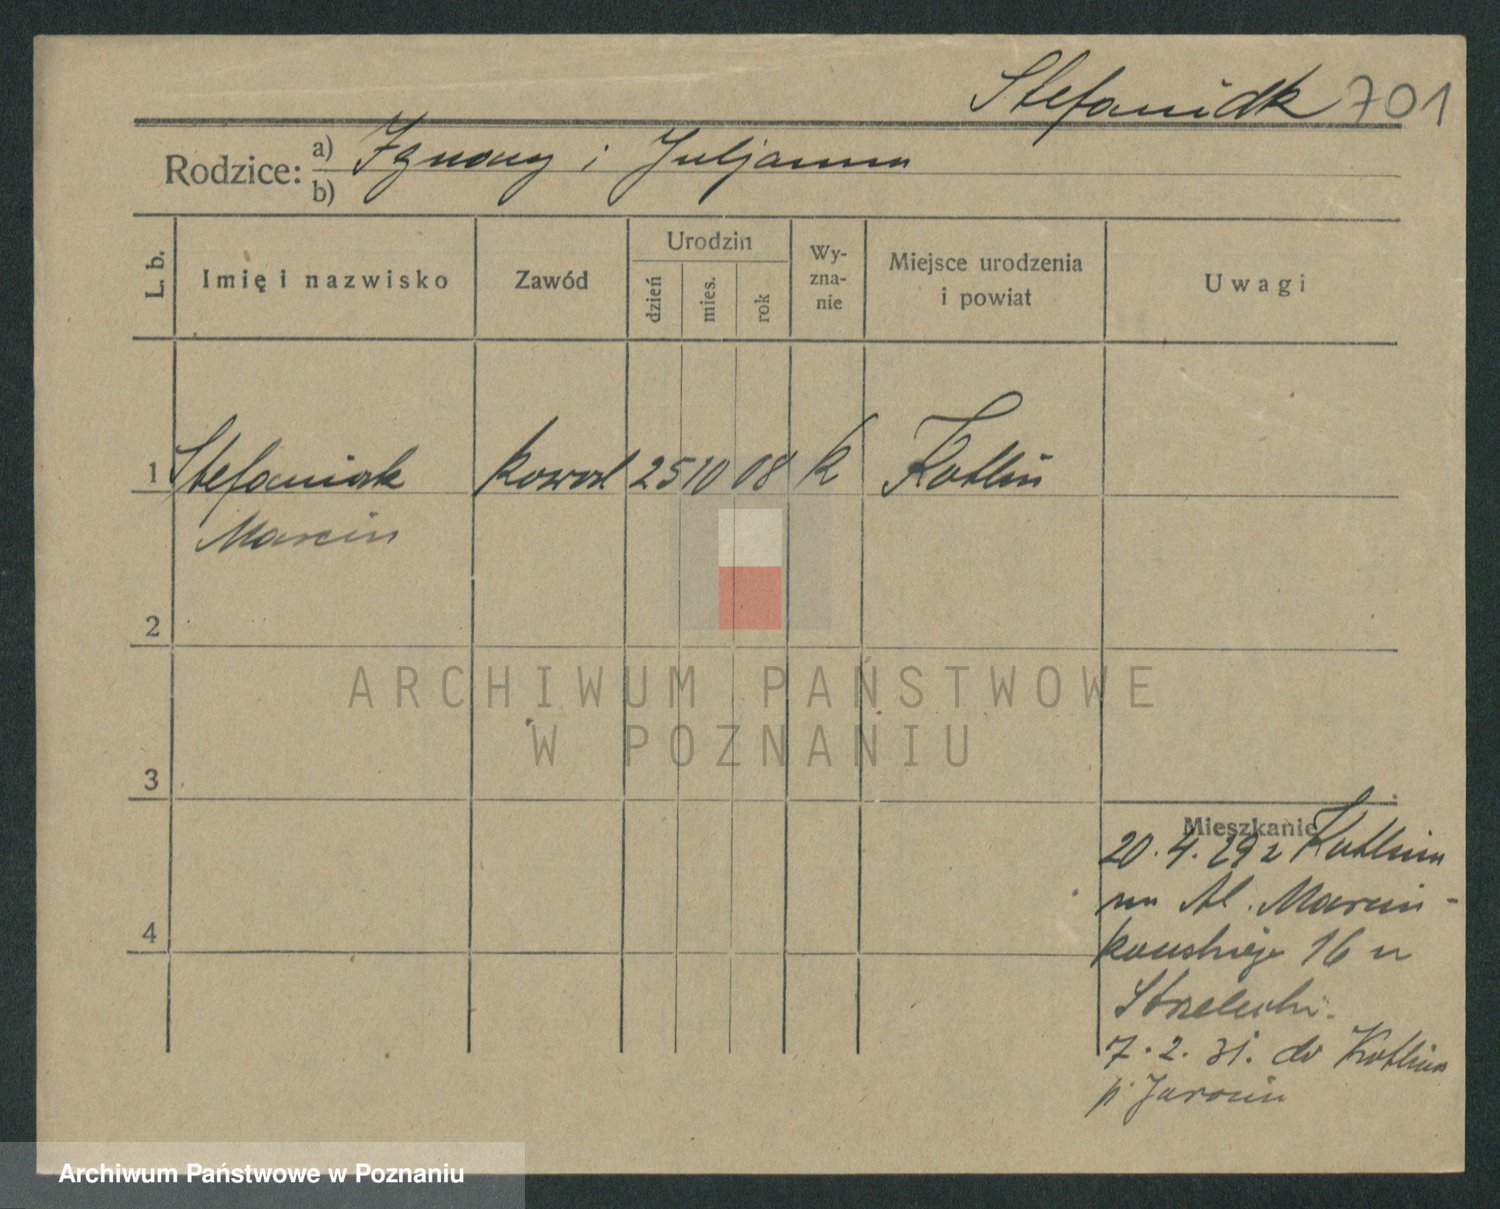 Stefaniak 701
Rodzice: a) Ignacy i Juljanna
b)
L. b. Imię i nazwisko Zawód Urodzin dzień mies. rok Wyznanie Miejsce urodzenia i powiat Uwagi
1 Stefaniak kowal 25 10 08 k Kotlin
Marcin
2
3
4
ARCHIWUM PAŃSTWOWE
W POZNANIU
Mieszkanie
20.4.29 z Kotlina
na Al. Marcin-
kowskiego 16 u
Strzelecki.
7.2.31. do Kotlina
p. Jarocin
Archiwum Państwowe w Poznaniu